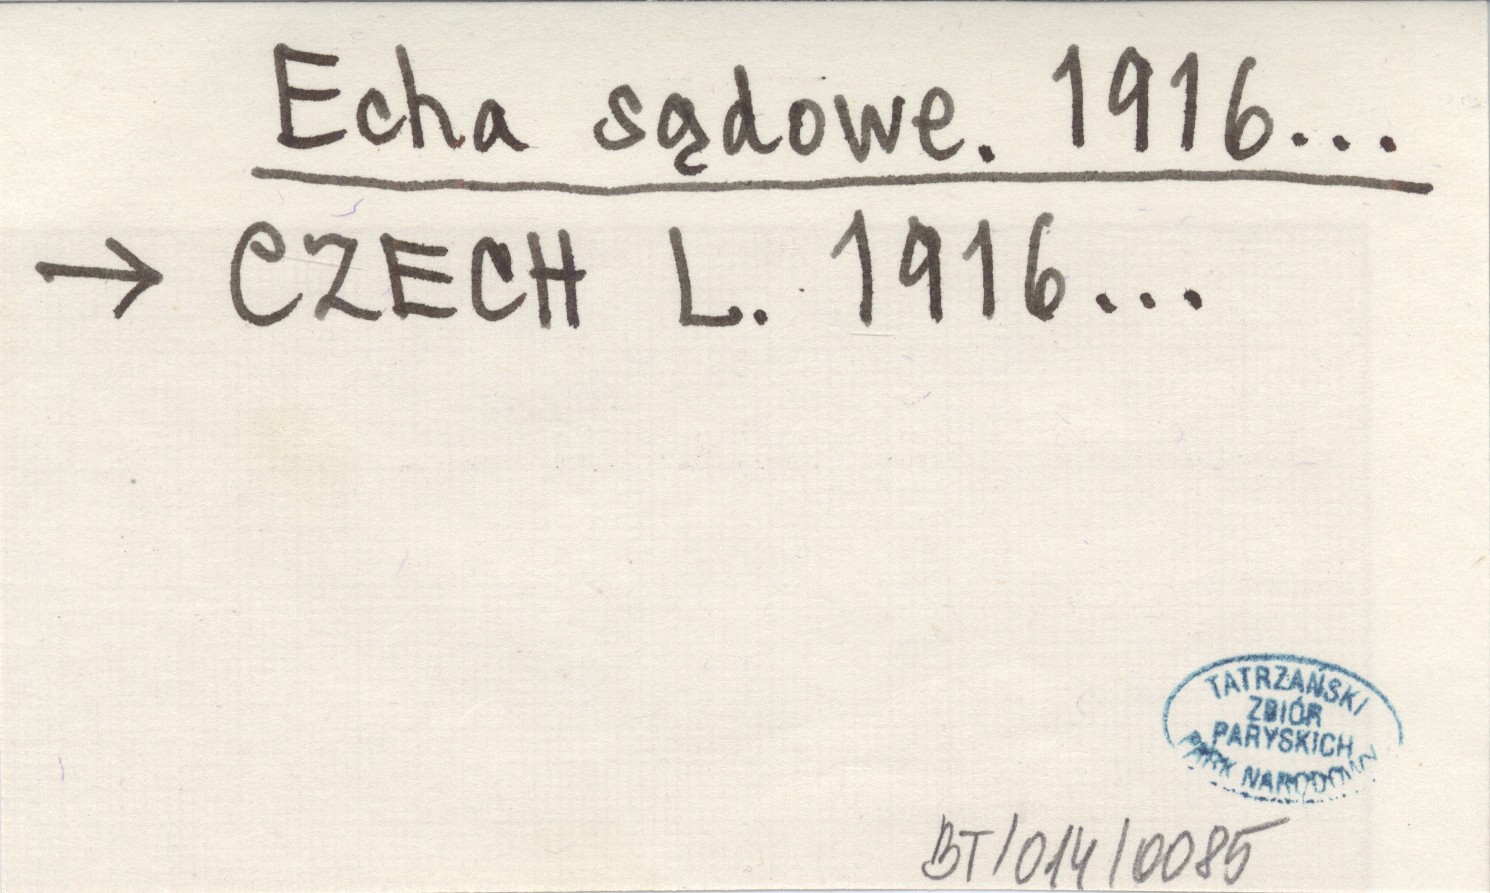 Echa sądowe. 1916...
→ CZECH L. 1916...
TATRZAŃSKI
ZBIÓR
PARYSKICH
PARK NARODOWY
BT/014/0085